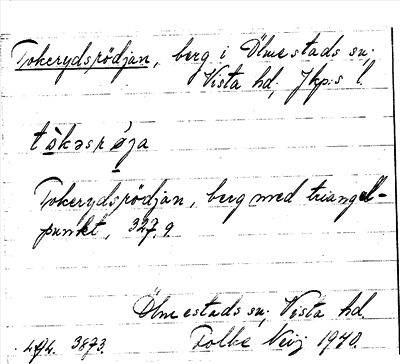 Tokerydsrödjan, berg i Ölmestads sn,
Vista hd, Jkp:s l.
tòkəsrø̀ja
Tokerydsrödjan, berg med triangel-
punkt, 327,9
Ölmestads sn, Vista hd.
494. 3873. Folke 1940.